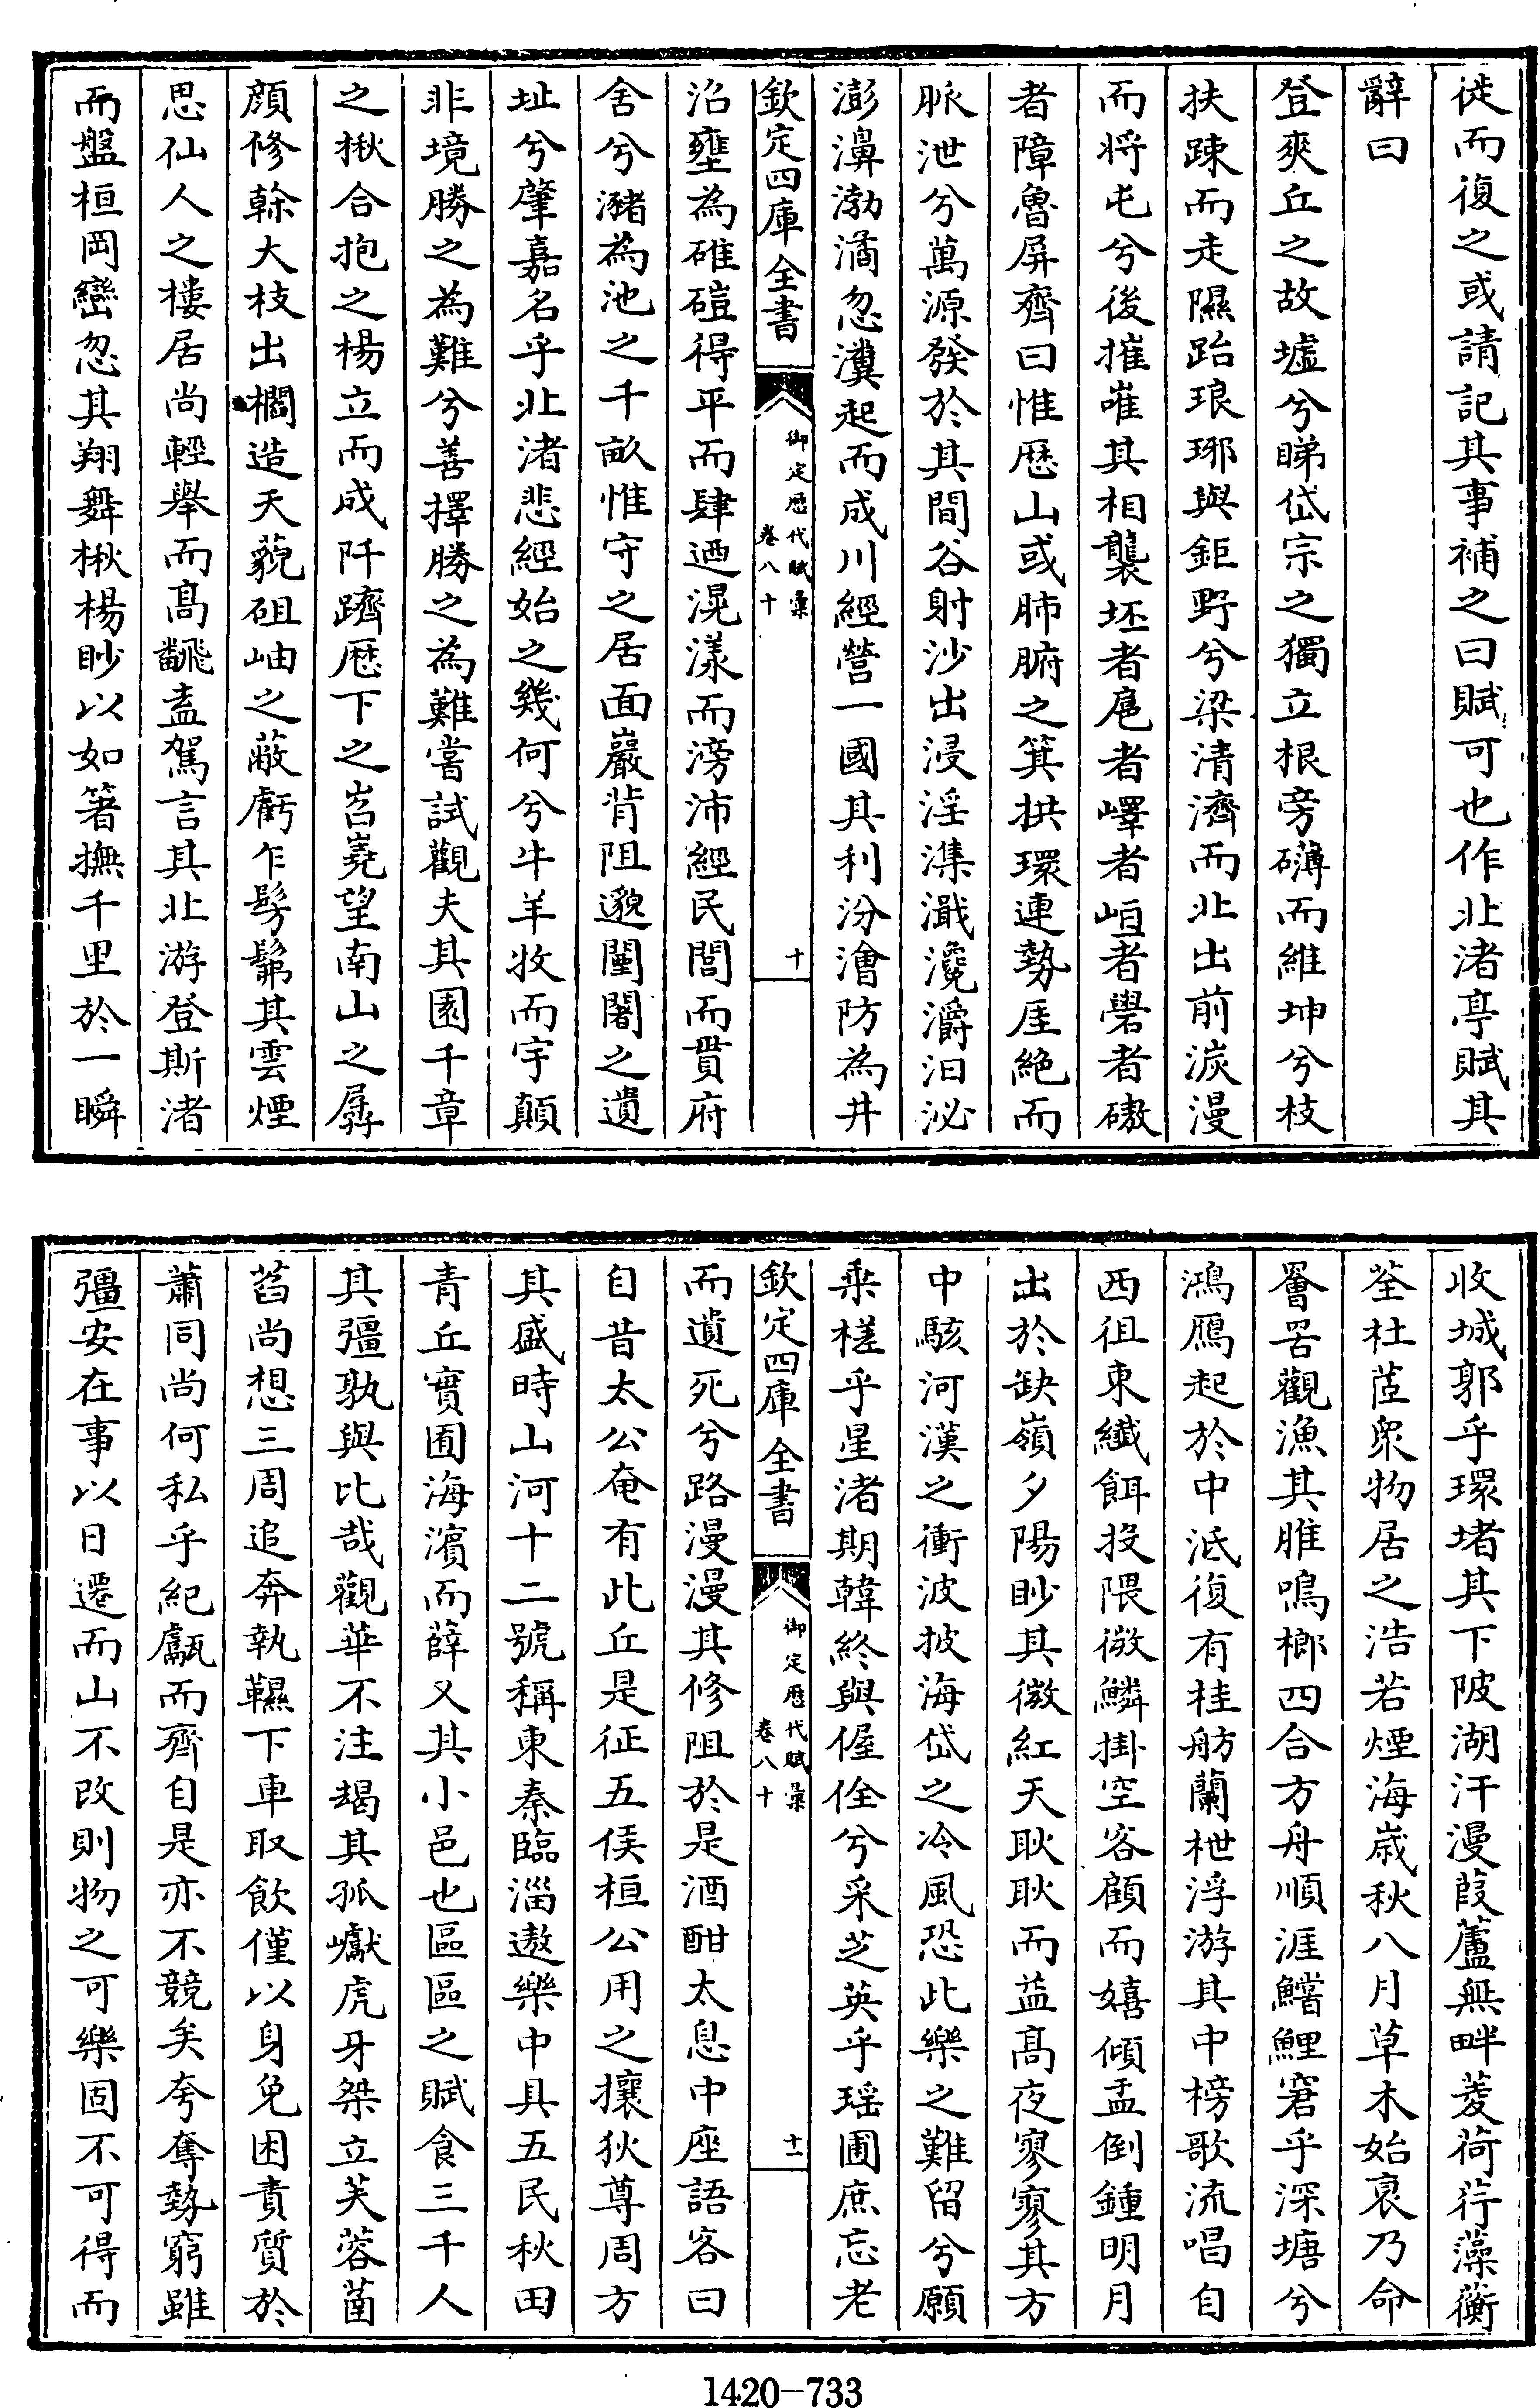 徙而復之或請記其事補之曰賦可也作北渚亭賦其
辭曰
登爽丘之故墟兮睇岱宗之獨立根旁礴而維坤兮枝
扶踈而走隰跆琅琊與鉅野兮梁清濟而北出前淡漫
而將屯兮後摧嶉其相襲坯者扈者嶧者峘者礐者磝
者障魯屏齊曰惟歴山或肺腑之箕拱環連勢厓絶而
脈泄兮萬源發於其間谷射沙出浸淫潗㴙灇灂汩泌
澎濞渤潏忽瀵起而成川經營一國其利汾澮防為井
欽定四庫全書
御定歴代賦彚
卷八十
十
沿壅為碓磑得平而肆迺滉漾而滂沛經民閭而貫府
舍兮瀦為池之千畝惟守之居面巖背阻邈闉闍之遺
址兮肇嘉名乎北渚悲經始之幾何兮牛羊牧而宇顛
非境勝之為難兮善擇勝之為難嘗試觀夫其園千章
之楸合抱之楊立而成阡躋歴下之岧嶤望南山之孱
顔修榦大枝出櫩造天藐砠岫之蔽虧乍髣髴其雲煙
思仙人之樓居尚輕舉而髙飜盍駕言其北游登斯渚
而盤桓岡巒忽其翔舞楸楊眇以如箸撫千里於一瞬
收城郭乎環堵其下陂湖汗漫葭蘆無畔菱荷荇藻蘅
荃杜茝衆物居之浩若煙海嵗秋八月草木始衰乃命
罾罟觀漁其脽鳴榔四合方舟順涯鱨鯉窘乎深塘兮
鴻鴈起於中泜復有桂舫蘭枻浮游其中榜歌流唱自
西徂東纎餌投隈微鱗掛空客顧而嬉傾盂倒鍾明月
出於缺嶺夕陽眇其微紅天耿耿而益髙夜寥寥其方
中駭河漢之衝波披海岱之冷風恐此樂之難留兮願
乘槎乎星渚期韓終與偓佺兮采芝英乎瑶圃庶忘老
欽定四庫全書
御定歴代賦彚
卷八十
十一
而遺死兮路漫漫其修阻於是酒酣太息中座語客曰
自昔太公奄有此丘是征五侯桓公用之攘狄尊周方
其盛時山河十二號稱東秦臨淄遨樂中具五民秋田
青丘實囿海濱而薛又其小邑也區區之賦食三千人
其彊孰與比哉觀華不注朅其孤巘虎牙桀立芙蓉菡
萏尚想三周追奔執䩭下車取飲僅以身免困責質於
蕭同尚何私乎紀甗而齊自是亦不競矣夸奪勢窮雖
彊安在事以日遷而山不改則物之可樂固不可得而
1420-733